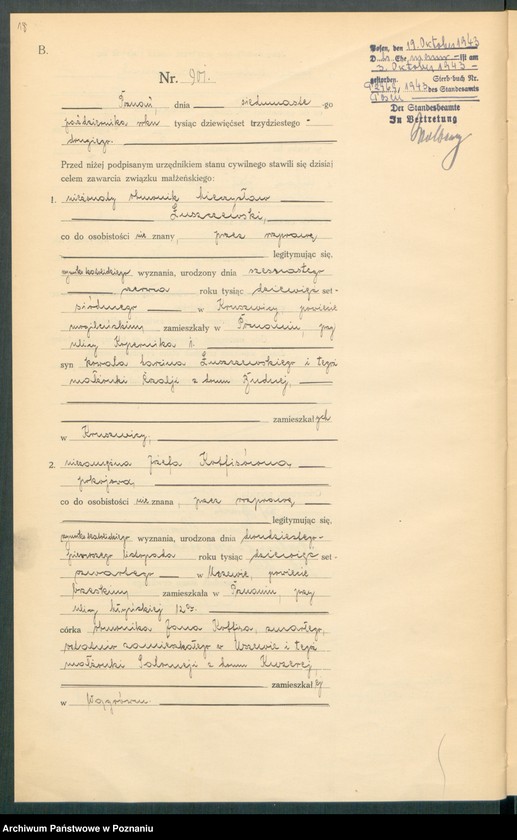 18
B.
Posen, den 19. Oktober 1943
ist am
3. Oktober 1943 -
gestorben. Sterbebuch Nr.
1943 des Standesamts
Posen
Der Standesbeamte
In Vertretung
Nr. 901.
Poznań, dnia siedmnaste -go
października roku tysiąc dziewięćset trzydziestego -
drugiego.
Przed niżej podpisanym urzędnikiem stanu cywilnego stawili się dzisiaj
celem zawarcia związku małżeńskiego:
1. nieżonaty Mieczysław
Łuszczewski,
co do osobistości nie znany, przez rozprawę
legitymując się,
rzymsko katolickiego wyznania, urodzony dnia szesnastego
czerwca roku tysiąc dziewięć set -
siódmego w Kruszwicy, powiecie
mogileńskim zamieszkały w Poznaniu, przy
ulicy Kopernika
syn kowala Łuszczewskiego i tegoż
małżonki z domu
zamieszkałych
w Kruszwicy,
2. niezamężna Józefa
pokojowa,
co do osobistości nie znana, przez rozprawę
legitymując się,
rzymsko katolickiego wyznania, urodzona dnia dwudziestego-
pierwszego listopada roku tysiąc dziewięć set -
czwartego w Uszewie, powiecie
brzeskim zamieszkała w Poznaniu, przy
ulicy
córka Jana zmarłego,
ostatnio zamieszkałego w Uszewie i tegoż
małżonki Salomeji z domu
zamieszkałej
w Wągrówcu.
Archiwum Państwowe w Poznaniu